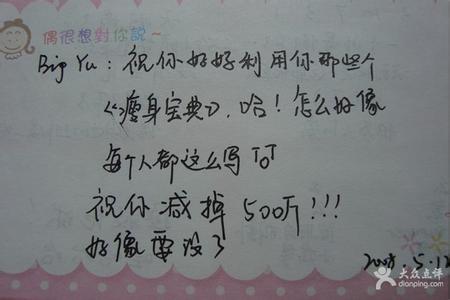 偶很想對你說～
Big Yu：祝你好好利用你那些个
《瘦身宝典》，哈！怎么好像
每个人都这么写 TOT
祝你减掉 500斤！！！
好像要没了
2008.5.12
大众点评
dianping.com